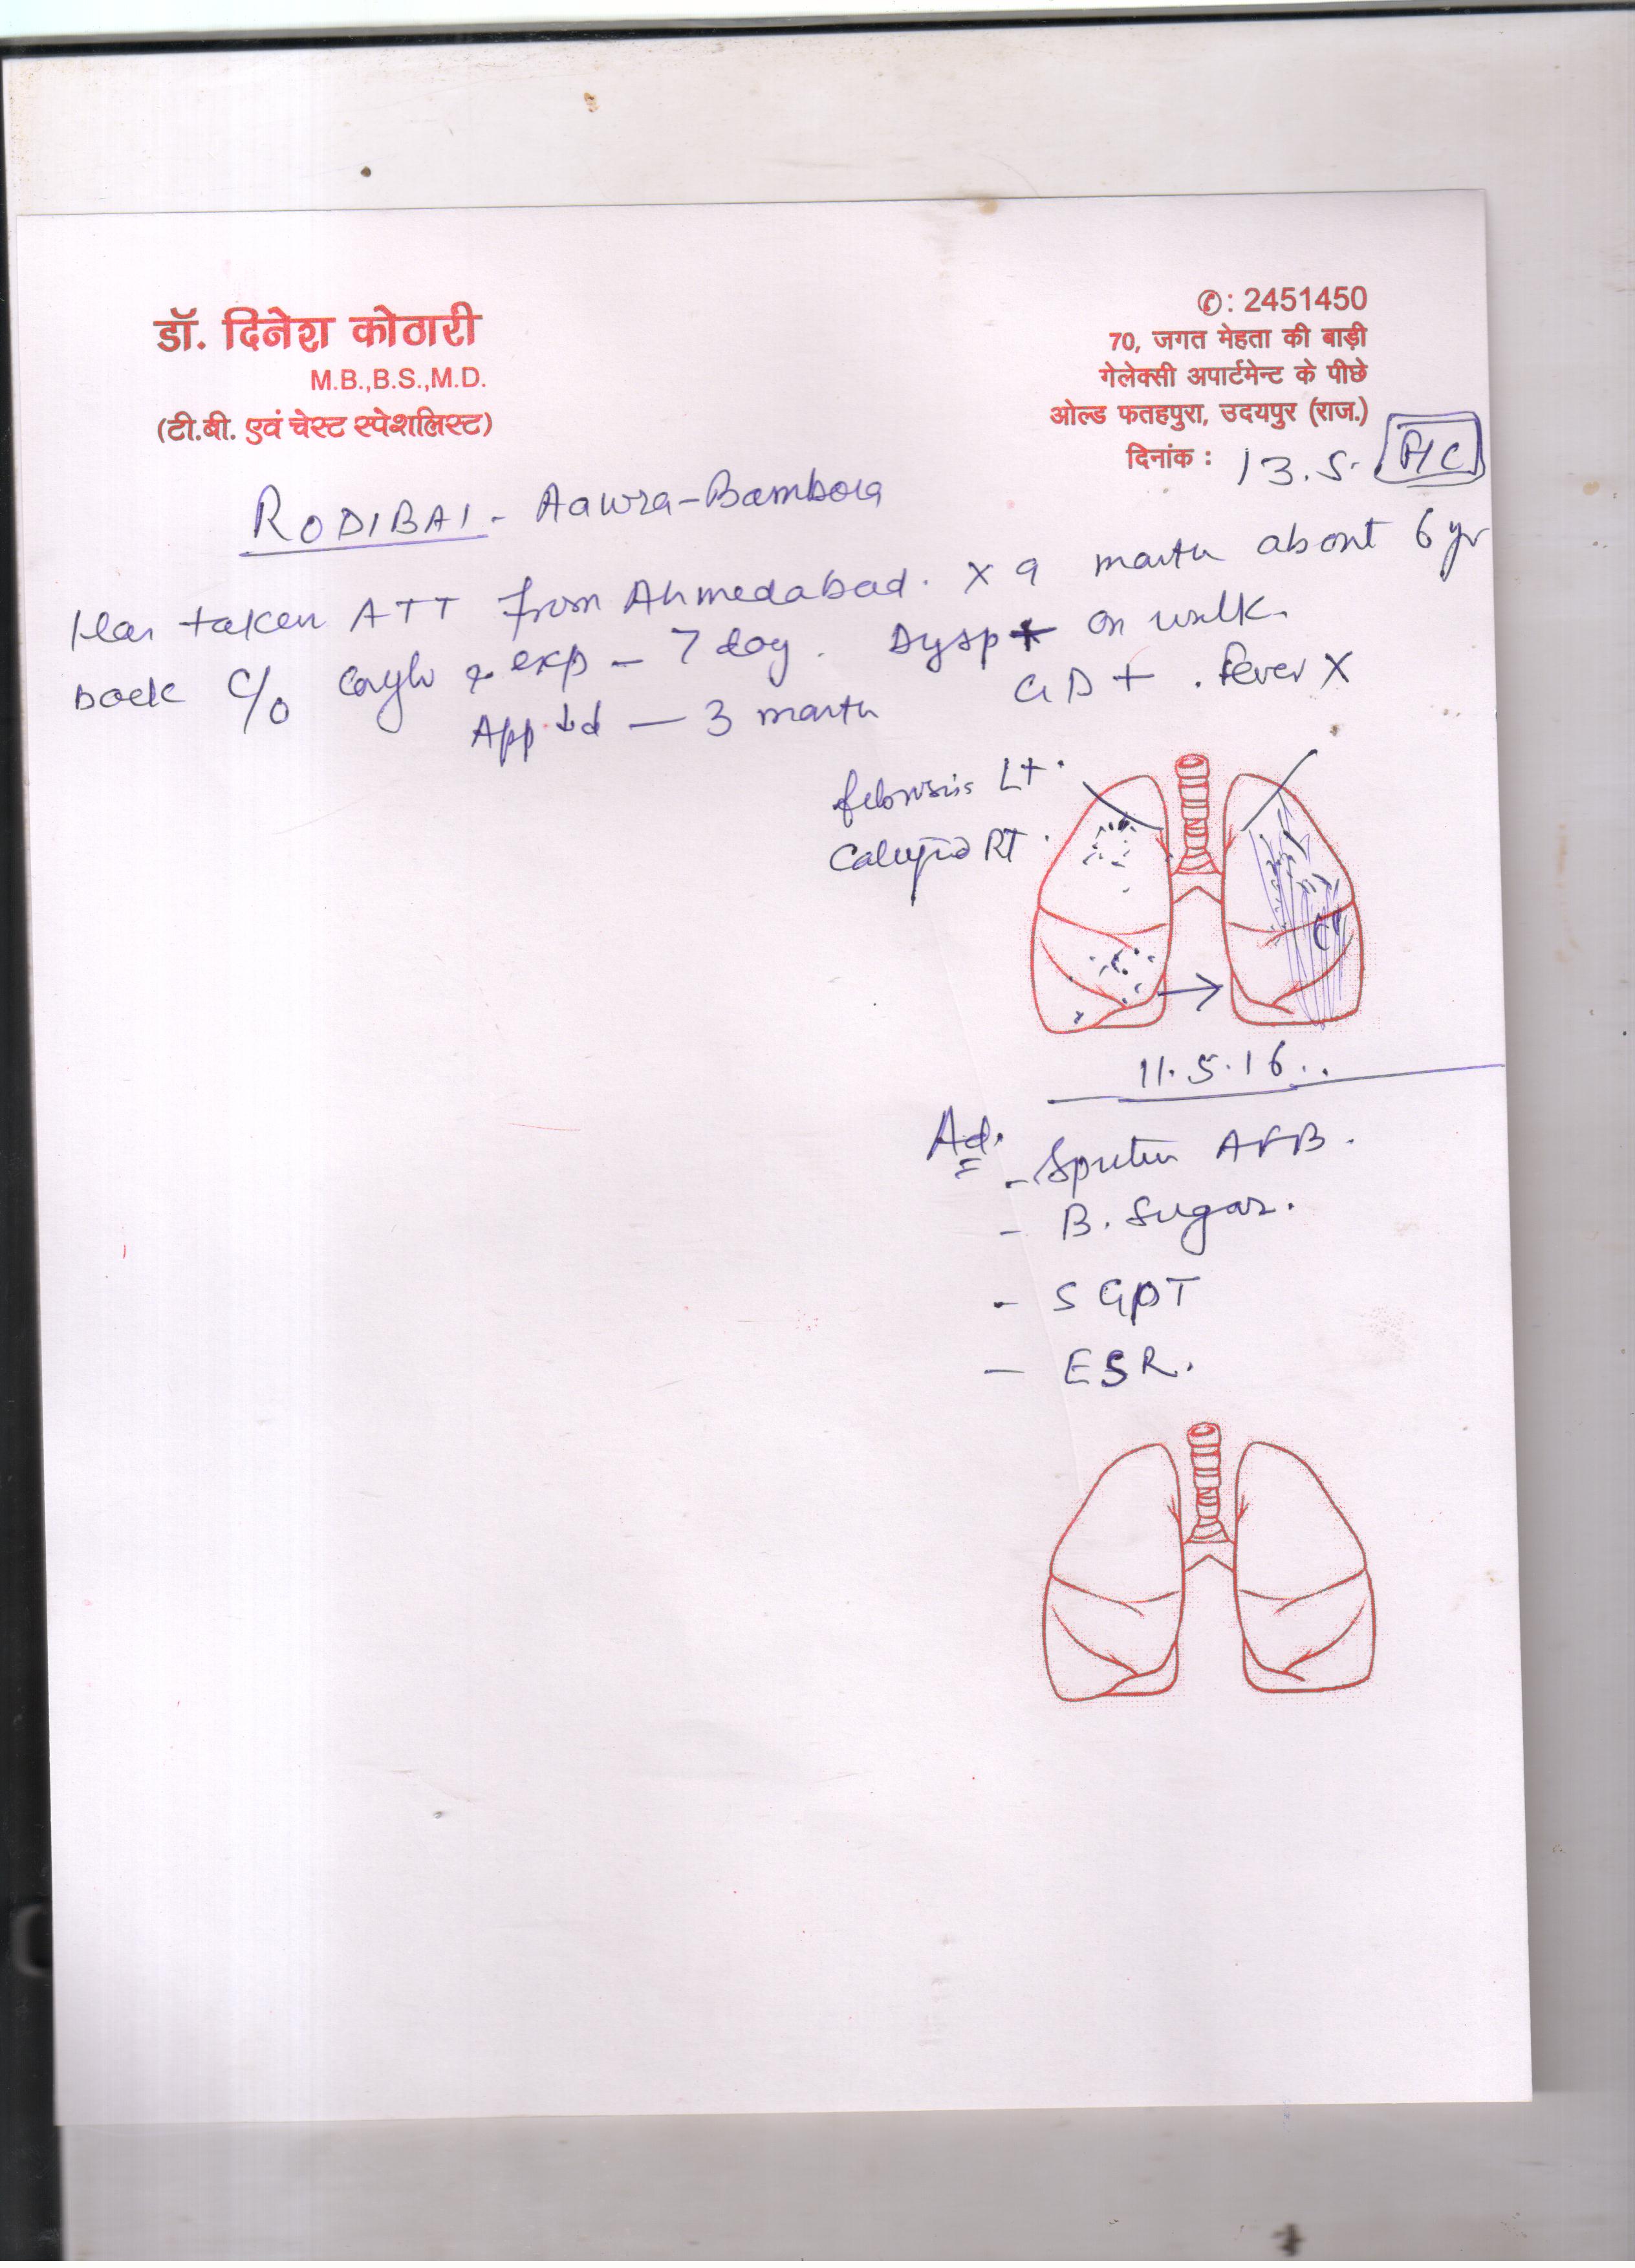 डॉ. दिनेश कोठारी
M.B.,B.S.,M.D.
(टी.बी. एवं चेस्ट स्पेशलिस्ट)
✆: 2451450
70, जगत मेहता की बाड़ी
गेलेक्सी अपार्टमेन्ट के पीछे
ओल्ड फतहपुरा, उदयपुर (राज.)
दिनांक : 13.5.
RODIBAI - Aawra-Bambora
Has taken ATT from Ahmedabad. x 9 month about 6 yr
back c/o Cough & exp - 7 day. Dysp + on walk.
App ↓d - 3 month GD + . Fever X
fibrosis Lt.
RT.
11.5.16..
Ad.
- Sputum AFB.
- B. Sugar.
- SGPT
- ESR.